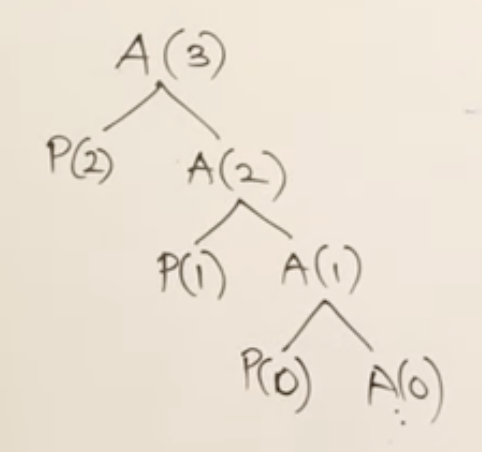 A(3)
P(2) A(2)
P(1) A(1)
P(0) A(0)